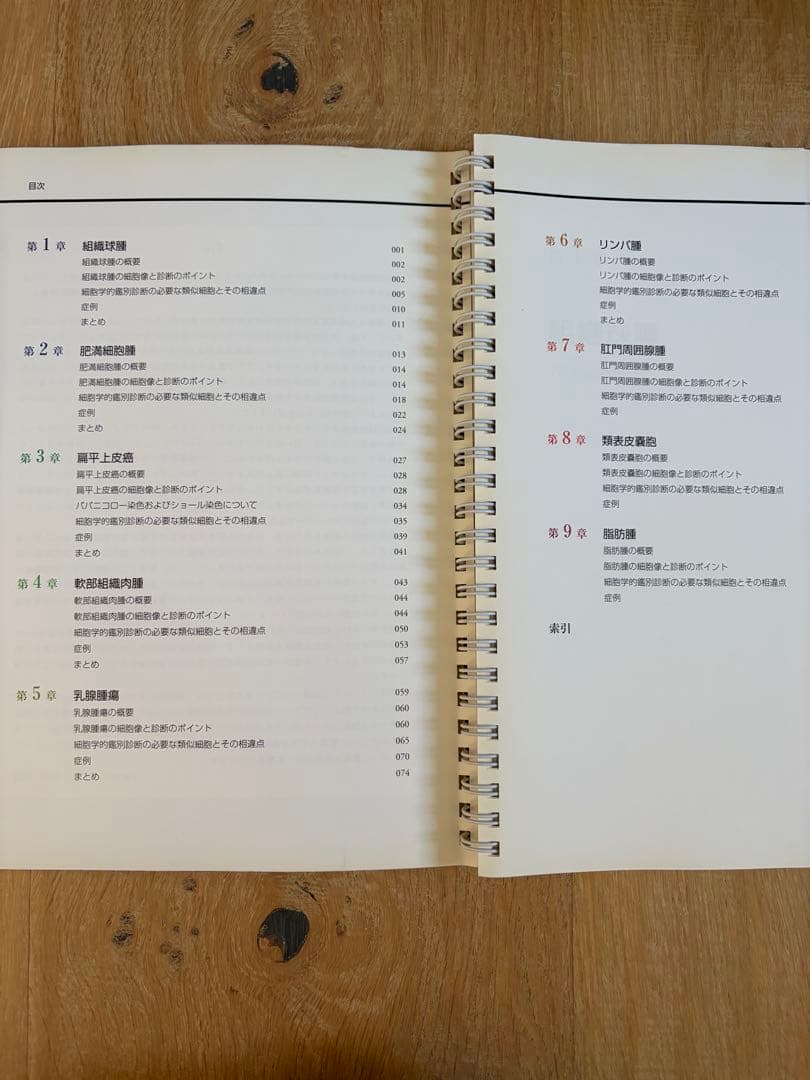 目次
第1章 組織球腫 001
組織球腫の概要 002
組織球腫の細胞像と診断のポイント 002
細胞学的鑑別診断の必要な類似細胞とその相違点 005
症例 010
まとめ 011
第2章 肥満細胞腫 013
肥満細胞腫の概要 014
肥満細胞腫の細胞像と診断のポイント 014
細胞学的鑑別診断の必要な類似細胞とその相違点 018
症例 022
まとめ 024
第3章 扁平上皮癌 027
扁平上皮癌の概要 028
扁平上皮癌の細胞像と診断のポイント 028
パパニコロー染色およびショール染色について 034
細胞学的鑑別診断の必要な類似細胞とその相違点 035
症例 039
まとめ 041
第4章 軟部組織肉腫 043
軟部組織肉腫の概要 044
軟部組織肉腫の細胞像と診断のポイント 044
細胞学的鑑別診断の必要な類似細胞とその相違点 050
症例 053
まとめ 057
第5章 乳腺腫瘍 059
乳腺腫瘍の概要 060
乳腺腫瘍の細胞像と診断のポイント 060
細胞学的鑑別診断の必要な類似細胞とその相違点 065
症例 070
まとめ 074
第6章 リンパ腫
リンパ腫の概要
リンパ腫の細胞像と診断のポイント
細胞学的鑑別診断の必要な類似細胞とその相違点
症例
まとめ
第7章 肛門周囲腺腫
肛門周囲腺腫の概要
肛門周囲腺腫の細胞像と診断のポイント
細胞学的鑑別診断の必要な類似細胞とその相違点
症例
第8章 類表皮嚢胞
類表皮嚢胞の概要
類表皮嚢胞の細胞像と診断のポイント
細胞学的鑑別診断の必要な類似細胞とその相違点
症例
第9章 脂肪腫
脂肪腫の概要
脂肪腫の細胞像と診断のポイント
細胞学的鑑別診断の必要な類似細胞とその相違点
症例
索引